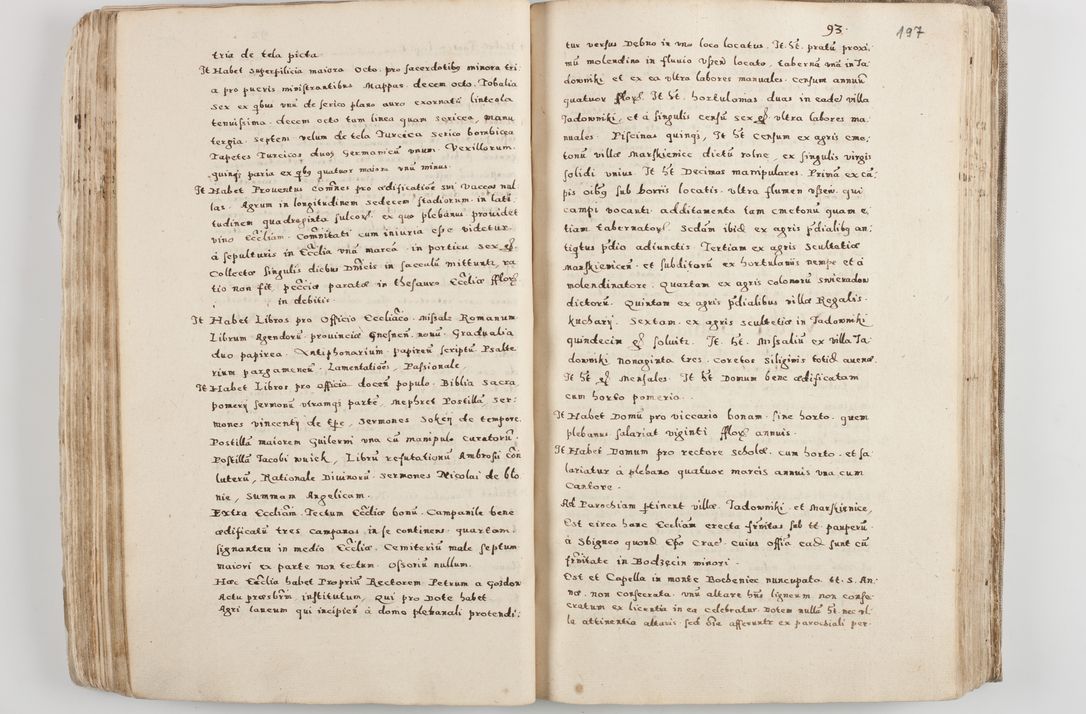 tria de tela picta.
It Habet superpilicia maiora octo. pro sacerdotibꝫ minora tri-
a pro pueris ministrantibus Mappas. decem octo. Tobalia
sex ex qbus vnū de serico plano auro exornatū linteola
tenuissima. decem octo tam linea quam sericea, manu
tergia. septem velum de tela Turcica serico bombicea
Tapetes Turcicos duos Germanicū vnum. Vexillorum.
quinqꝫ paria ex qbꝫ quatuor maiora vnū minus.
It Habet Prouentus com̄nes pro ædificatiōe sui vaccas nul
las. Agrum in longitudinem sedecem stadiorum in latū
tudinem quadraginta sulcoꝝ ex quo plebanus prouidet
vino Eccl̄iam. Com̄nitati cum iniuria esse videtur.
à sepulturis in Eccl̄ia vnā marcā. in porticu sex gꝭ.
Collectæ singulis diebus Dn̄icis in sacculū mittuntꝛ, ra
tio non fit. pecc̄iæ paratæ in thesauro Eccl̄iæ ffloꝝ
in debitis.
It Habet Libros pro Officio Eccl̄iaco. Missale Romanum
Librum Agendorū prouinciæ Gnesnen. nouū. Gradualia
duo papirea. Antiphonarium. papireū scriptū Psalte
rium pargameneū. Lamentatiōes, Passionale.
It Habet Libros pro officio docen̄ populo. Biblia sacra
pomerij sermonū vtramqꝫ partē, Mephret Postillā Ser-
mones vincentij de tp̄e, sermones Sokeij de tempore.
Postillā maiorem Guilermi vna cū manipulo curatorū.
Postillā Jacobi wuick, Librū refutationū Ambrosij Con
luterū, Rationale Diuinorū. sermones Nicolai de blo
nie, Summam Angelicam.
Extra Eccliām. Tectum Eccliæ bonū. Campanile bene
ædificatū tres campanas in se continens quartam.
signantem in medio Eccliæ. Cemiterium male septum
maiori ex parte non tectum. Ossoriū nullum.
Hæc Eccl̄ia habet Proprium Rectorem Petrum a Gozdow
Actu præsbrm̄ institutum, Qui pro Dote habet
Agri laneum qui incipien̄ à domo plebanali protendi:
93.
197
tur versus Debno in vno loco locatus. It. h̄t. pratū proxi.
mū molendino in fluuio vszen locato, tabernā vnā in Ja-
downiki et ex ea vltra labores manuales. censum annuū
quatuor ffloꝝ. It h̄t. hortulonias duas in eadē villa
Jadowniki, et à singulis censū sex gꝭ. vltra labores ma-
nuales. Piscinas quinqꝫ, It h̄t censum ex agris cme-
tonū villæ Marszkienice dictū rolne, ex singulis virgis
solidi vnius. It h̄t Decimas manipulares. Primā ex cā-
pis oībꝫ sub horris locatis. vltra flumen vszew. qui
campi vocantꝛ. additamenta tam cmetonū quam e-
tiam tabernatoꝝ. Secdām ibid̄ ex agris p̄dialibꝫ an-
tiqtus p̄dio adiunctis Tertiam ex agris Scultetiæ
Marszkienicen̄. et subditorū ex hortulanijs nempe et à
molendinatore. Quartam ex agris colonorū Smieradow
dictorū. Quintam ex agris p̄dialibus villæ Regalis.
Kucharj. Sextam. ex agris scultetiæ in Jadowniki
quindecim gꝭ soluitꝛ. It. h̄t. Missaliū ex villa Ja-
downiki nonaginta tres. coretos siliginis totid̄ auenæ.
It h̄t gꝭ mensales. It h̄t Domum bene ædificatam
cum horto pomerio.
It Habet Domū pro viccario bonam. sine horto. quem
plebanus salariat viginti ffloꝝ annuis.
It Habet Domum pro rectore scholæ. cum horto. et sa
lariatur à plebano quatuor marcis annuis vna cum
Cantore.
Ad Parochiam ꝑtinent villæ Jadowniki. et Marszkienice,
Est circa hanc Eccl̄iam erecta fr̄nitas sub tt. pauperū.
à Sbigneo quond Ep̄o Crac̄. cuius officia ead̄ sunt cū
fr̄nitate in Bodzęcin minori.
Est et Capella in monte Bocheniec nuncupato. tt. S. An-
næ. non consecrata. vnū altare hn̄s ligneum. non conse-
cratum ex licentia in ea celebratur. Dotem nullā h̄t. nec vl-
la attinentia altaris. sed oīa afferuntꝛ ex parochiali per-